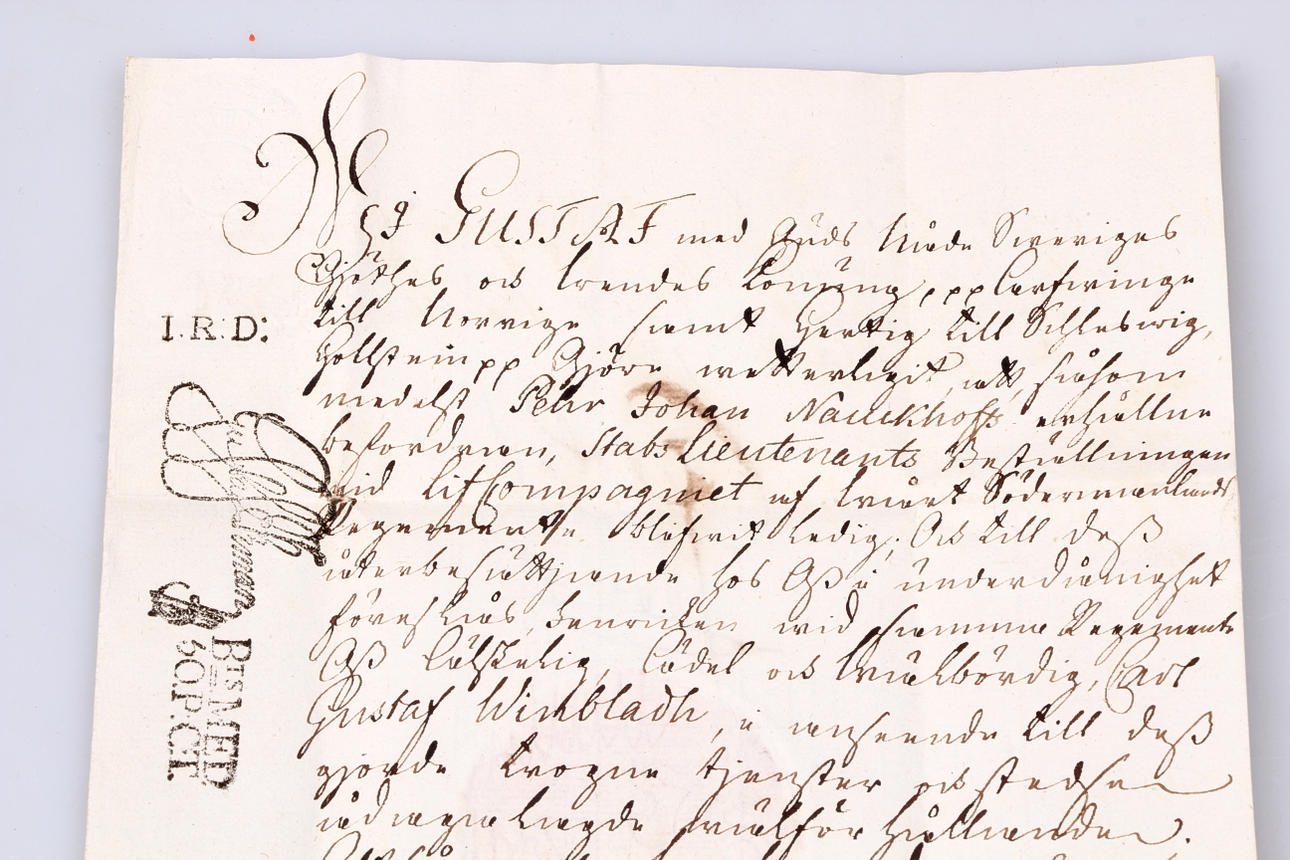 Wij GUSTAF med Guds Nåde Sweriges
Göthes och Wendes Konung, pp Arfwinge
till Norrige samt Hertig till Schleswig,
Hollstein pp Gjöre wetterligit, att såsom
medelst Pehr Johan Nauckhoffs erhållne
befordran, Stabs Lieutenants Beställningen
wid LifCompagniet af Wårt Södermanlands
Regemente blifwit ledig; Och till deß
återbesättjande hos Oß i underdånighet
föreslås, Fenricken wid samma Regemente
Oß Älskelig, Ädel och Wälbördig, Carl
Gustaf Winbladh, i anseende till deß
gjorde trogne tjenster och stedse
ådagalagde wälförhållande.
I.R.D:
Bts MED.
6 ÖP.CT.